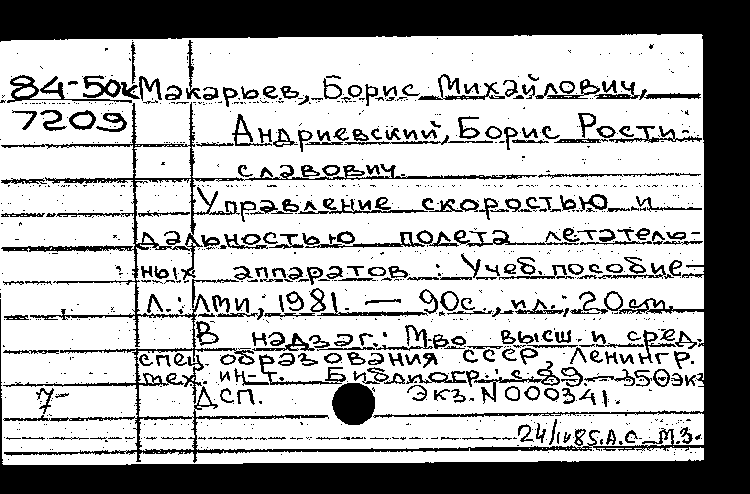 84-50к Макарьев, Борис Михайлович,
7209 Андриевский, Борис Рости-
славович.
Управление скоростью и
дальностью полета летатель-
ных аппаратов : Учеб. пособие—
Л.: ЛМИ, 1981. — 90с., ил.; 20см.
В надзаг.: М-во высш. и сред.
спец. образования СССР, Ленингр.
мех. ин-т. Библиогр.: с. 89. — 350экз
7- ДСП. Экз. N 000341.
24/IV 85. А.О. М.З.